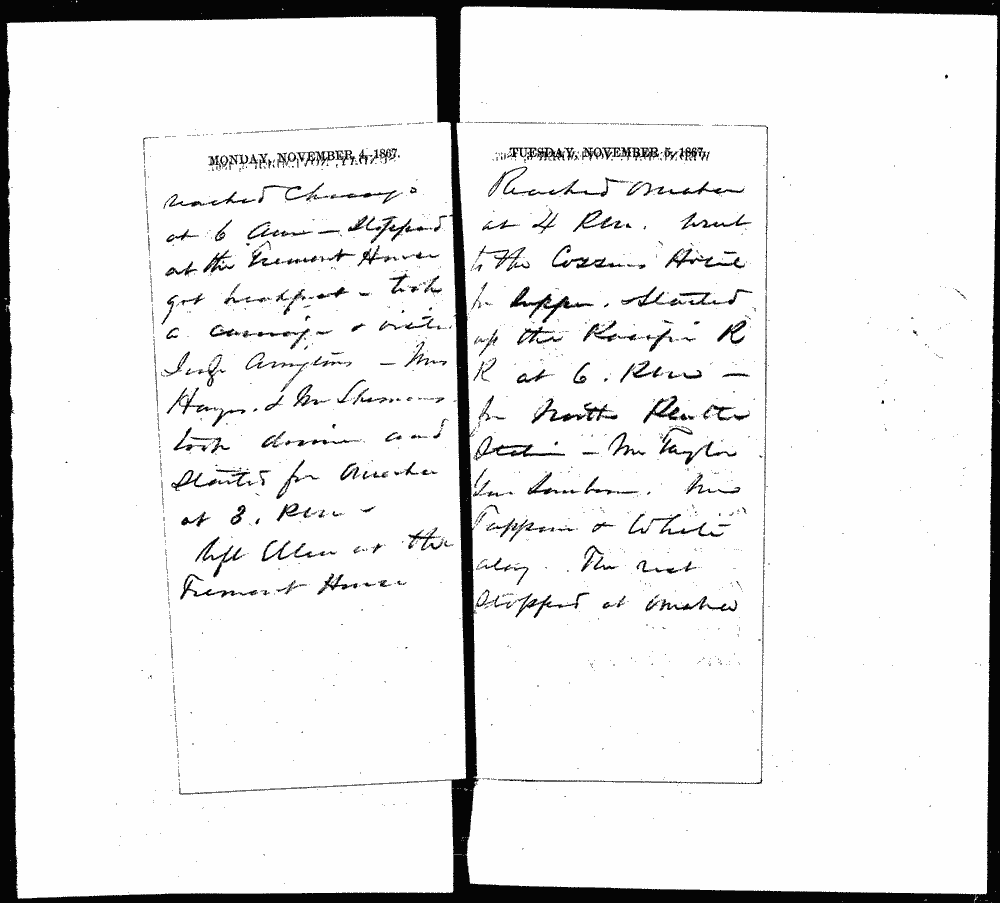 MONDAY, NOVEMBER 4, 1867.
reached Chicago
at 6 am — Stopped
at the Tremont House
got breakfast — took
a carriage & visited
Judge — Mrs
Hayes. & Mr Shermans
took dinner and
Started for Omaha
at 3. Pm —
left Ellen at the
Tremont House
TUESDAY, NOVEMBER 5, 1867.
Reached Omaha
at 4 Pm. Went
to the Cozzens House
for Supper. Started
up the Pacific R
R at 6. Pm —
for North Platte
Station — Mr Taylor
Gen Sanborn. Mrs
Tappan & White
along. The rest
Stopped at Omaha